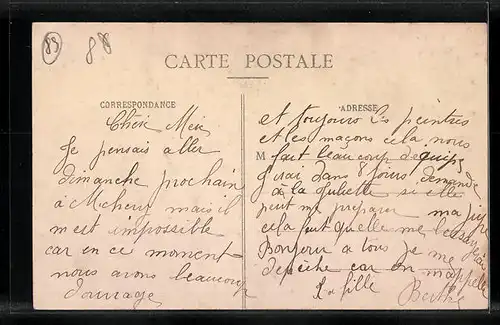 83
88
CARTE POSTALE
CORRESPONDANCE
Chère Mère
Je pensais aller
dimanche prochain
à Michery mais il
m est impossible
car en ce moment
nous avons beaucoup
d'ouvrage
ADRESSE
et toujours les peintres
et les maçons cela nous
M fait beaucoup
dans 8 jours demande
à la Juliette si elle
peut me préparer ma jupe
cela fait quelle me
Bonjour a tous je me
depêche car on m appelle
Ta fille Berthe